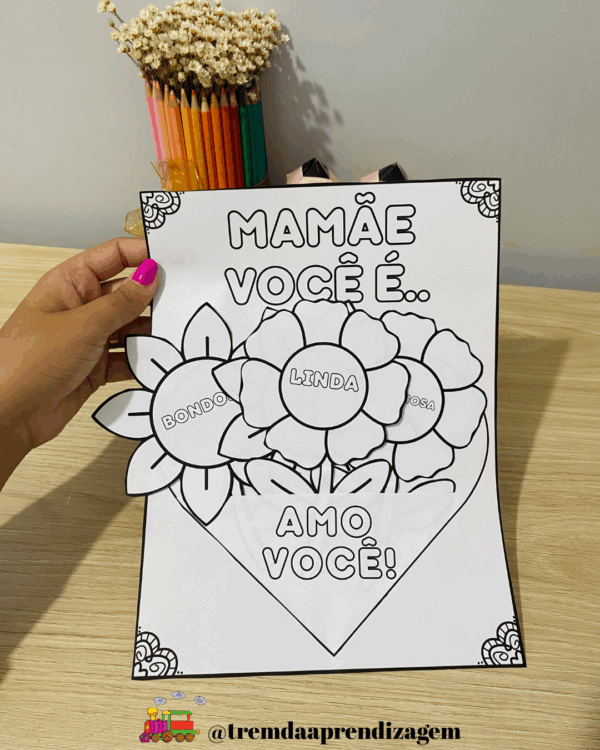 MAMÃE
VOCÊ É..
LINDA
AMO
VOCÊ!
@tremdaaprendizagem